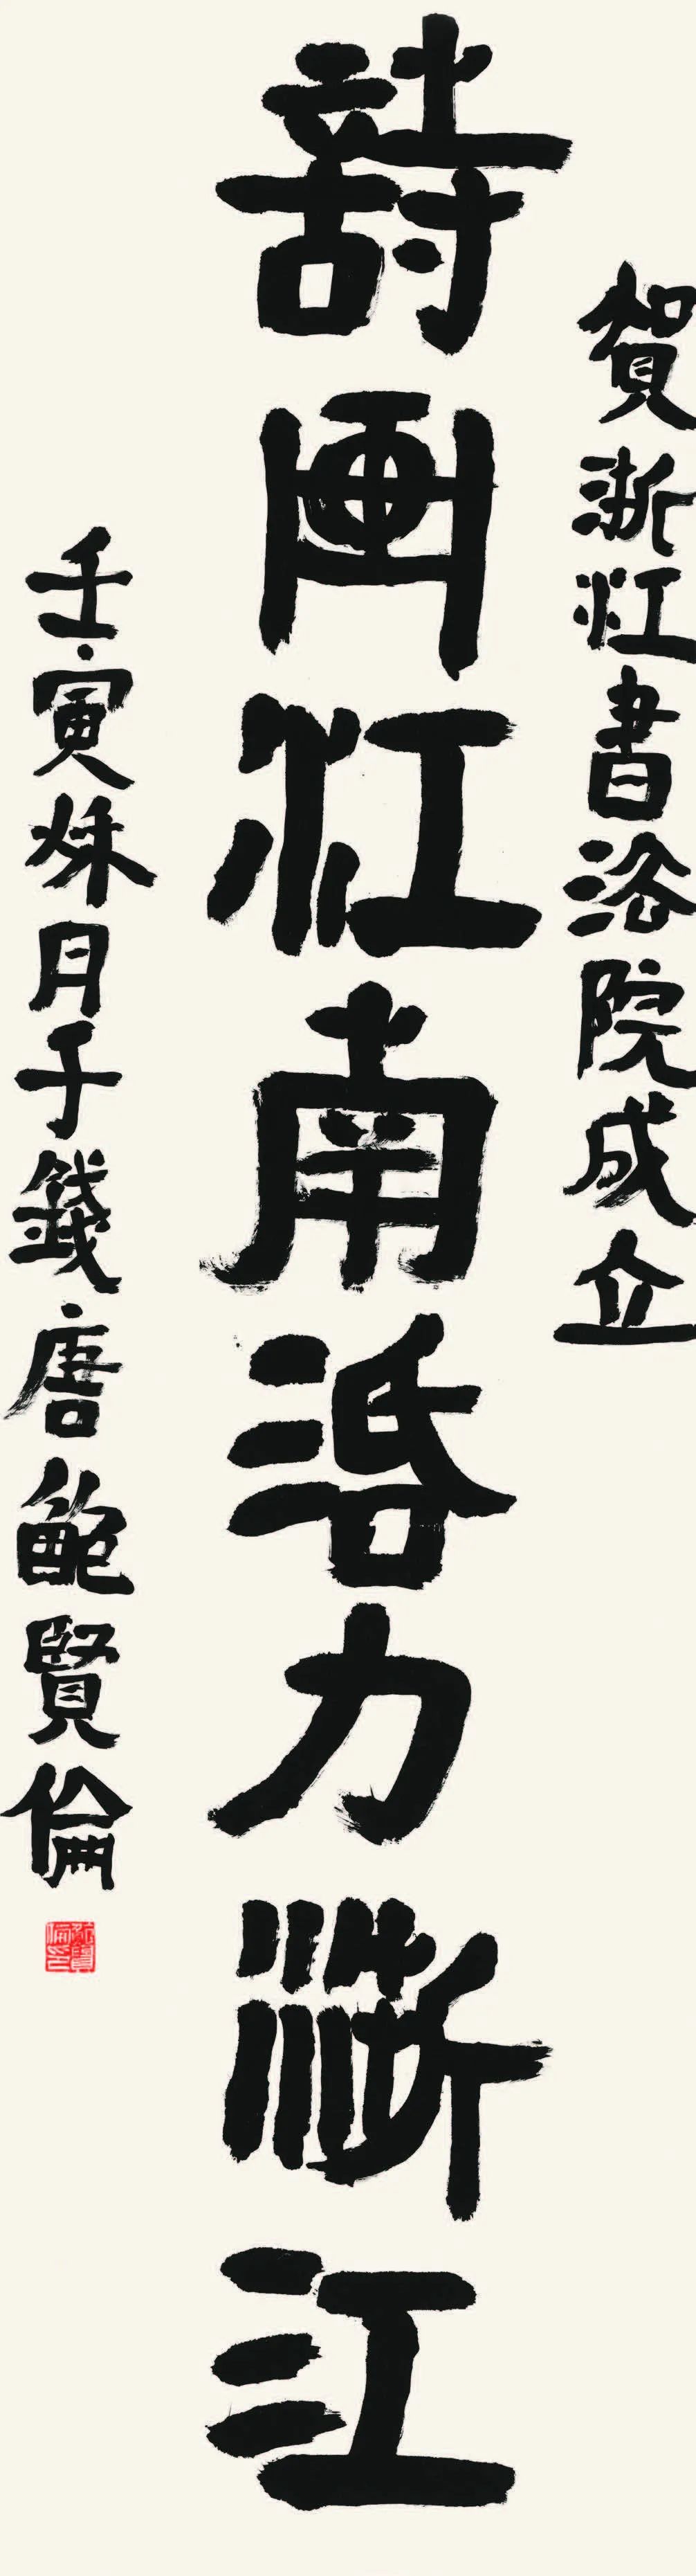 賀浙江書法院成立
詩画江南活力浙江
壬寅秌月于錢唐鮑賢倫